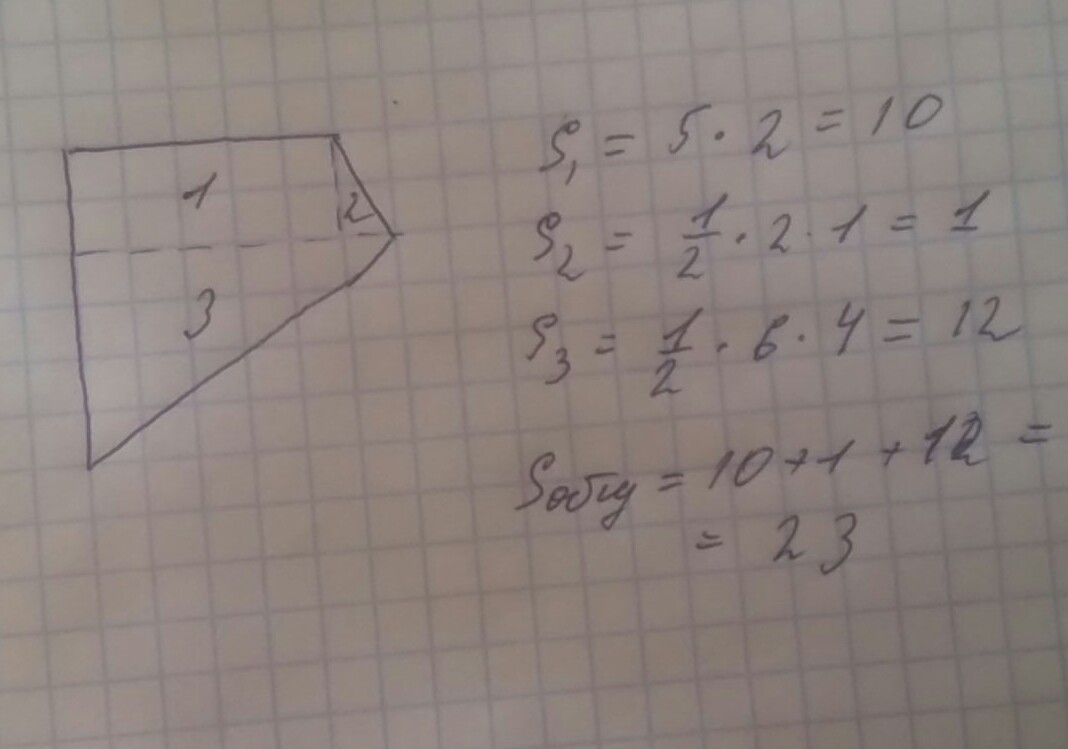 1
2
3
S₁ = 5 · 2 = 10
S₂ = 1/2 · 2 · 1 = 1
S₃ = 1/2 · 6 · 4 = 12
Sобщ = 10 + 1 + 12 =
= 23